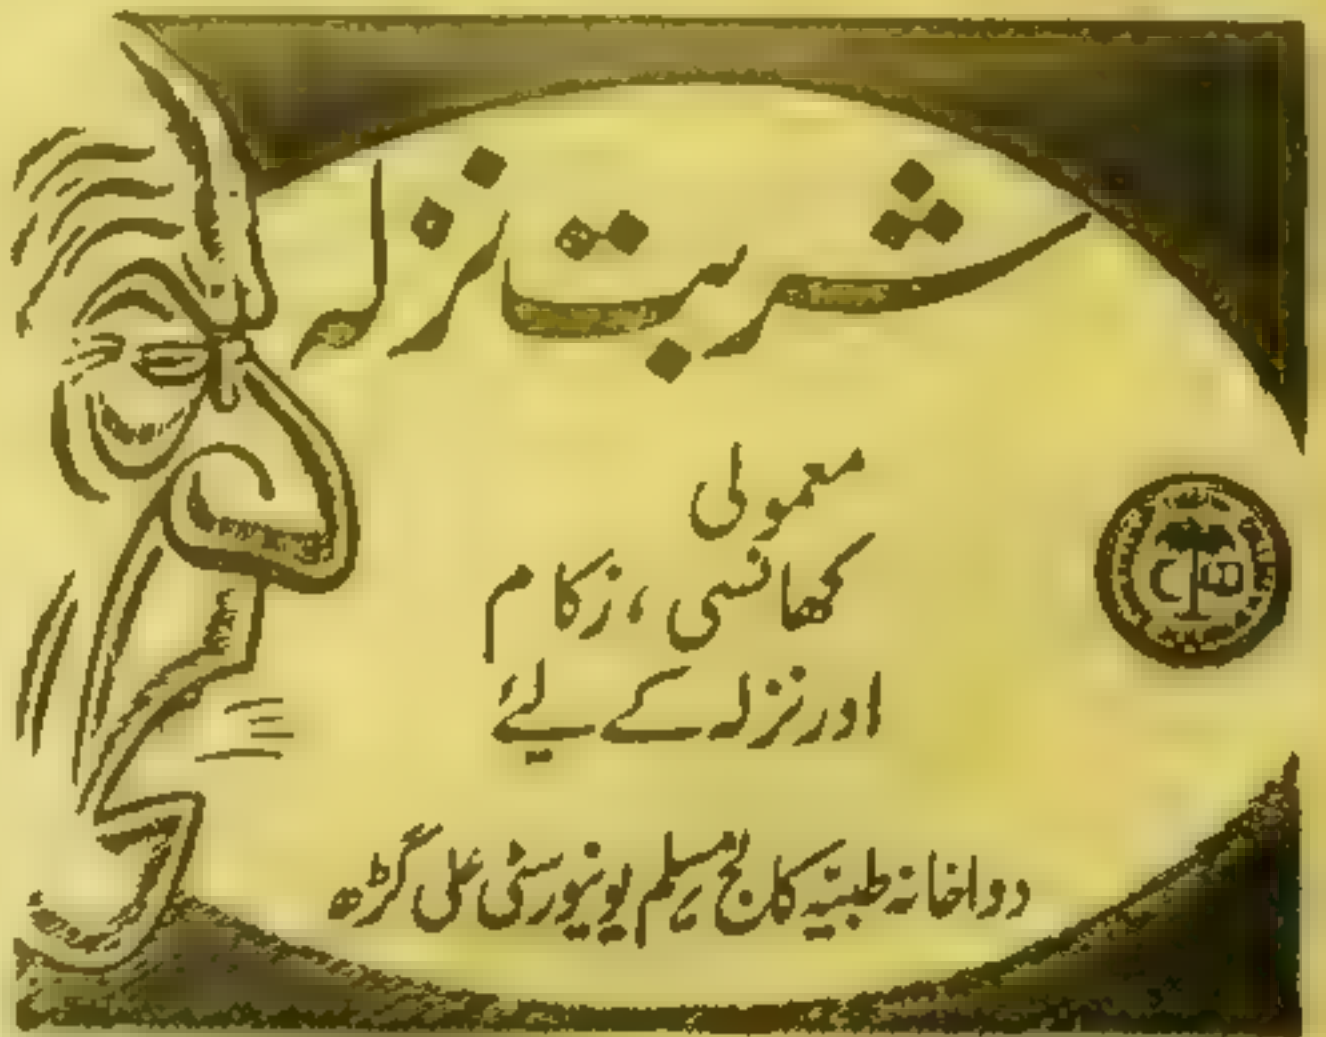 شربت نزلہ
معمولی
کھانسی ، زکام
اور نزلہ کے لئے
دواخانہ طبیہ کالج مسلم یونیورسٹی علی گڑھ